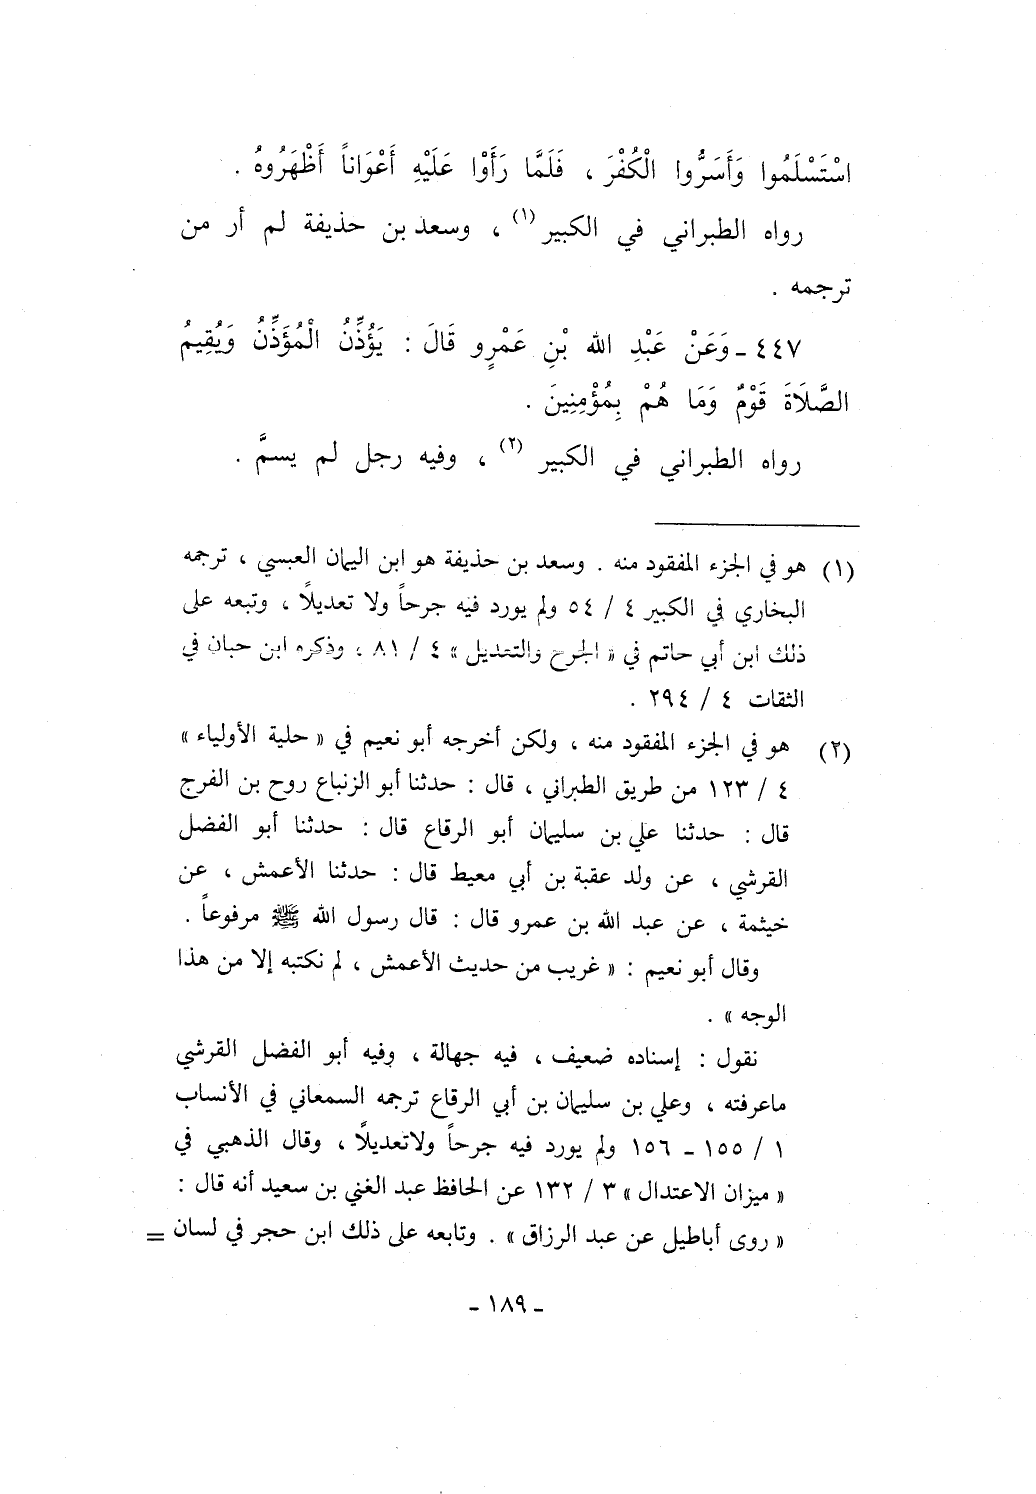 اسْتَسْلَمُوا وَأَسَرُّوا الْكُفْرَ ، فَلَمَّا رَأَوْا عَلَيْهِ أَعْوَاناً أَظْهَرُوهُ .
رواه الطبراني في الكبير (١) ، وسعد بن حذيفة لم أر من
ترجمه .
٤٤٧ ـ وَعَنْ عَبْدِ الله بْنِ عَمْرٍو قَالَ : يَؤُذِّنُ الْمُؤَذِّنُ وَيُقِيمُ
الصَّلَاةَ قَوْمٌ وَمَا هُمْ بِمُؤْمِنِينَ .
رواه الطبراني في الكبير (٢) ، وفيه رجل لم يسمَّ .
(١) هو في الجزء المفقود منه . وسعد بن حذيفة هو ابن اليمان العبسي ، ترجمه
البخاري في الكبير ٤ / ٥٤ ولم يورد فيه جرحاً ولا تعديلاً ، وتبعه على
ذلك ابن أبي حاتم في « الجرح والتعديل » ٤ / ٨١ ، وذكره ابن حبان في
الثقات ٤ / ٢٩٤ .
(٢) هو في الجزء المفقود منه ، ولكن أخرجه أبو نعيم في « حلية الأولياء »
٤ / ١٢٣ من طريق الطبراني ، قال : حدثنا أبو الزنباع روح بن الفرج
قال : حدثنا علي بن سليمان أبو الرقاع قال : حدثنا أبو الفضل
القرشي ، عن ولد عقبة بن أبي معيط قال : حدثنا الأعمش ، عن
خيثمة ، عن عبد الله بن عمرو قال : قال رسول الله ﷺ مرفوعاً .
وقال أبو نعيم : « غريب من حديث الأعمش ، لم نكتبه إلا من هذا
الوجه » .
نقول : إسناده ضعيف ، فيه جهالة ، وفيه أبو الفضل القرشي
ماعرفته ، وعلي بن سليمان بن أبي الرقاع ترجمه السمعاني في الأنساب
١ / ١٥٥ ـ ١٥٦ ولم يورد فيه جرحاً ولاتعديلاً ، وقال الذهبي في
« ميزان الاعتدال » ٣ / ١٣٢ عن الحافظ عبد الغني بن سعيد أنه قال :
« روى أباطيل عن عبد الرزاق » . وتابعه على ذلك ابن حجر في لسان =
ـ ١٨٩ ـ